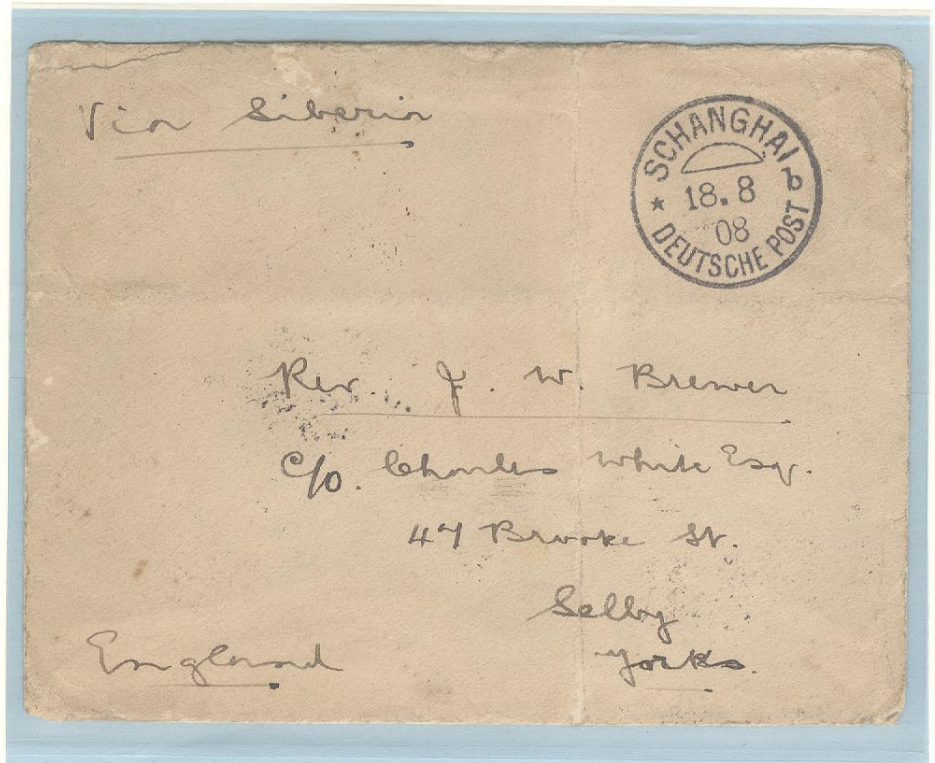 Via Siberia
SCHANGHAI b
18.8
08
* DEUTSCHE POST
Rev. J. W. Brewer
C/o. Charles White Esq.
47 Brooke St.
Selby
Yorks.
England